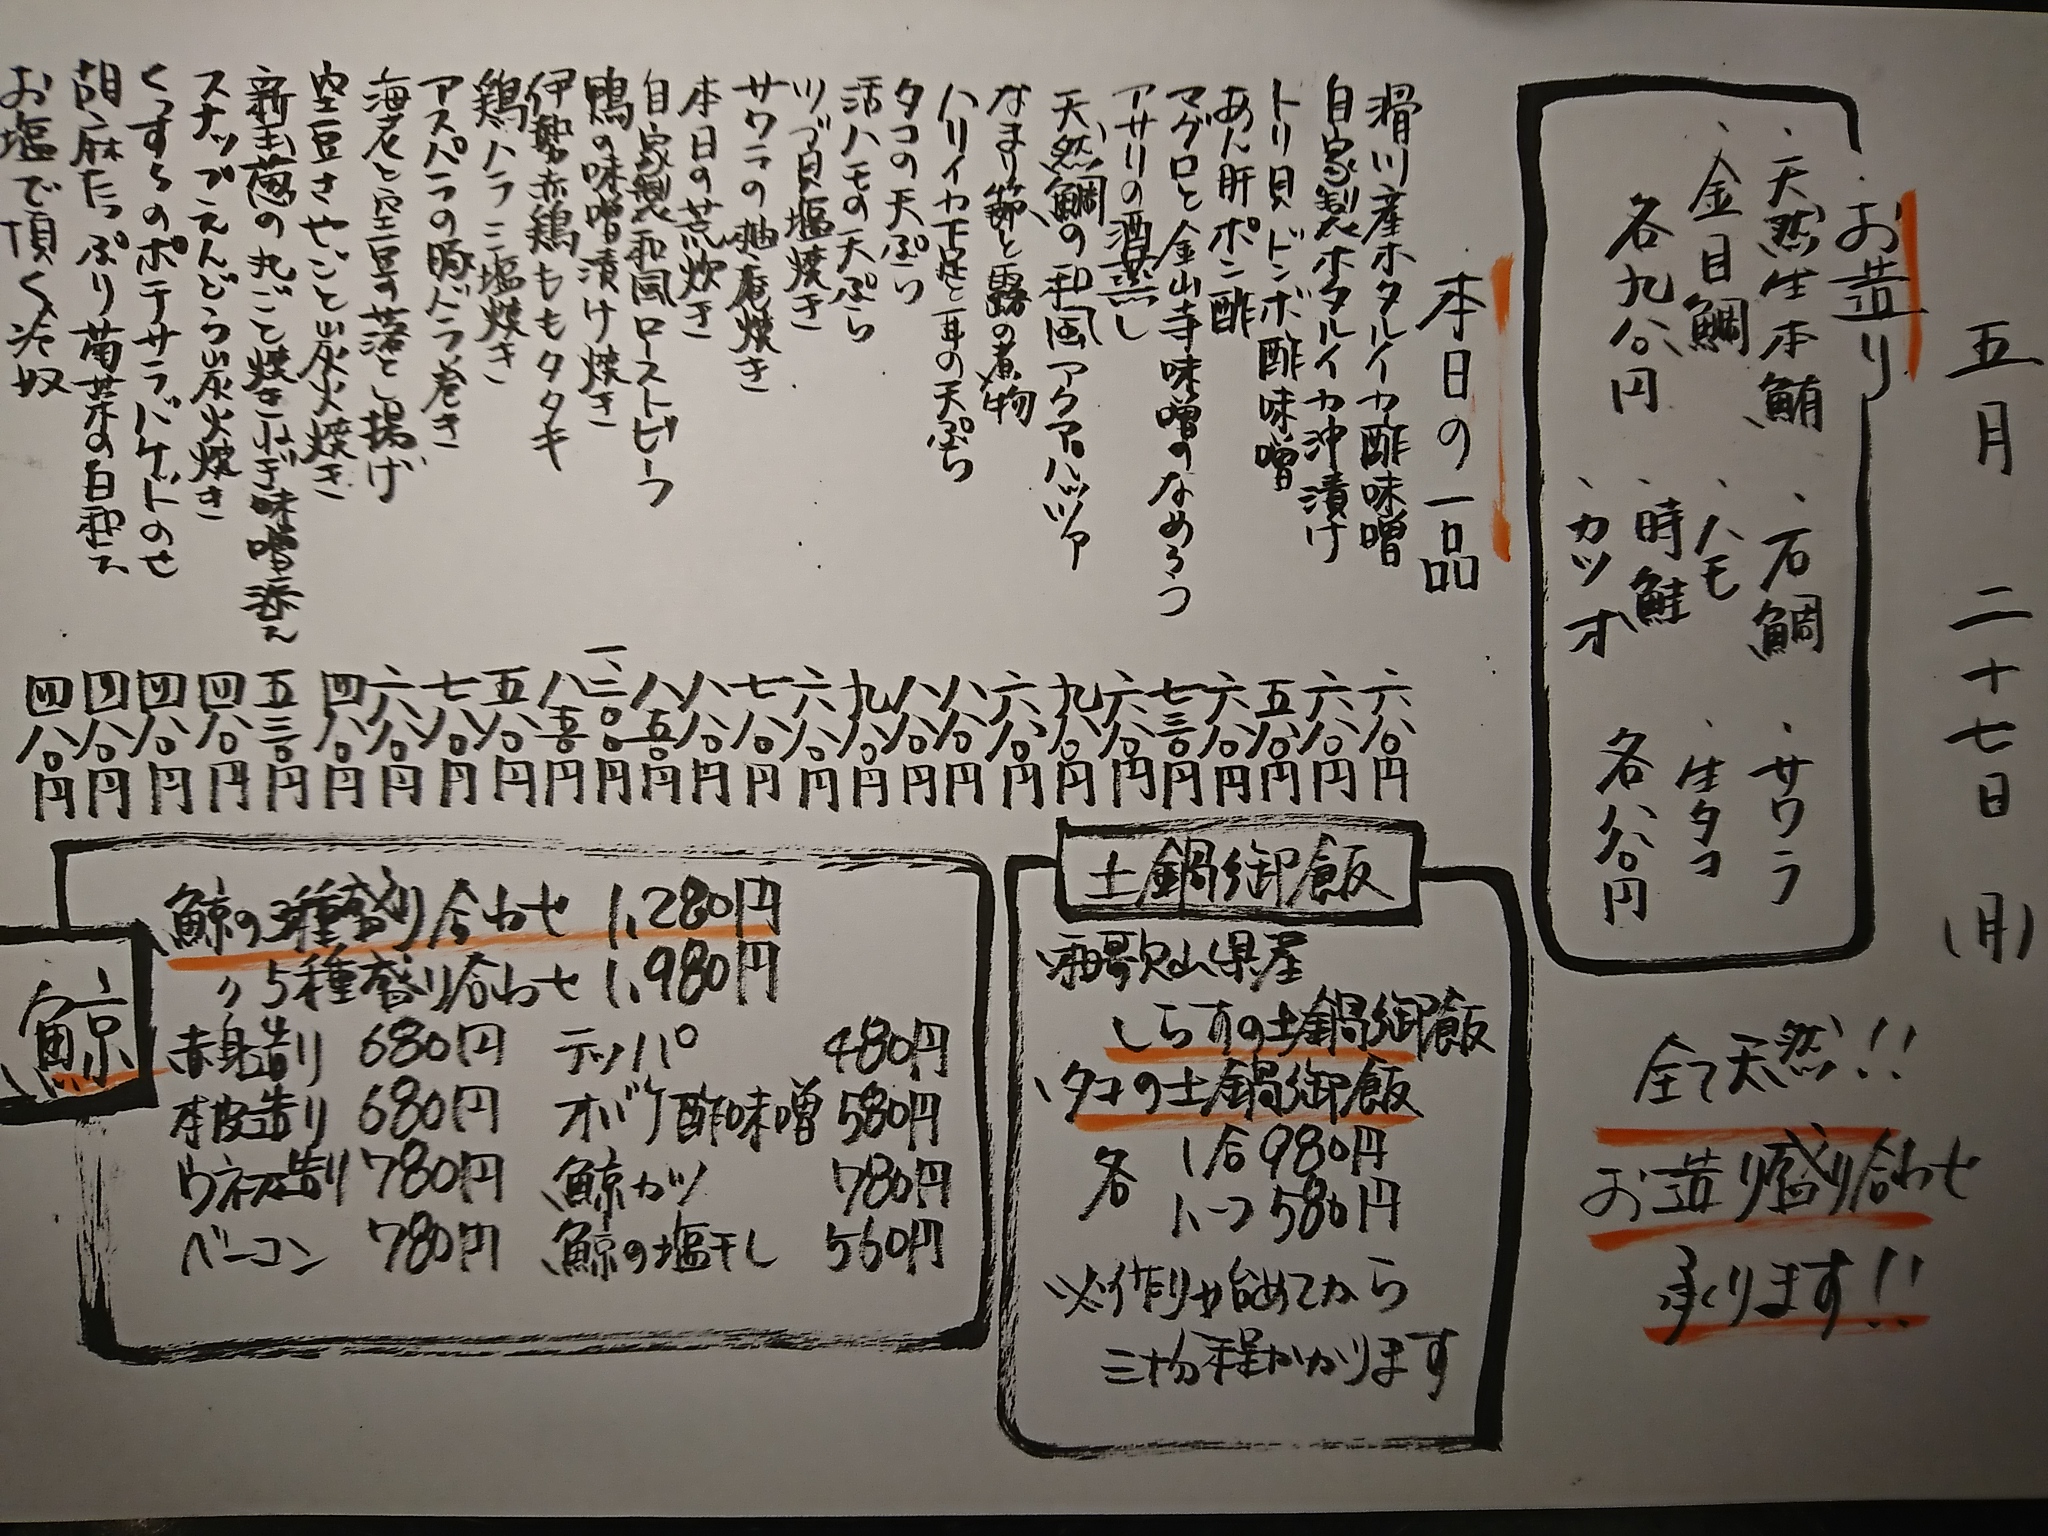 五月二十七日(月)
お造り
・天然生本鮪
・金目鯛
各九八〇円
・石鯛
・ハモ
・時鮭
・カツオ
・サワラ
・生タコ
各八八〇円
全て天然!!
お造り盛り合わせ
承ります!!
本日の一品
滑川産ホタルイカ酢味噌 六八〇円
自家製ホタルイカ沖漬け 六八〇円
トリ貝ドンボ酢味噌 五八〇円
あん肝ポン酢 六八〇円
マグロと金山寺味噌のなめろう 七三〇円
アサリの酒蒸し 六八〇円
天然鯛の和風アクアパッツァ 九八〇円
なまり節と蕗の煮物 六八〇円
ハリイカ下足と耳の天ぷら 八八〇円
タコの天ぷら 八八〇円
活ハモの天ぷら 九八〇円
ツブ貝塩焼き 六八〇円
サワラの柚庵焼き 七八〇円
本日の荒炊き 八八〇円
自家製和風ローストビーフ 八五〇円
鴨の味噌漬け焼き 一、三〇〇円
伊勢赤鶏ももタタキ 八五〇円
鶏ハラミ塩焼き 五八〇円
アスパラの豚バラ巻き 七八〇円
海老と空豆の落とし揚げ 六八〇円
空豆さやごと炭火焼き 四八〇円
新玉葱の丸ごと焼きねぎ味噌添え 五三〇円
スナップえんどう炭火焼き 四八〇円
くずし豆のポテサラバケットのせ 四八〇円
胡麻たっぷり菊菜の白和え 四八〇円
お塩で頂く冷奴 四八〇円
土鍋御飯
・和歌山県産
しらすの土鍋御飯
・タコの土鍋御飯
各 1合980円
ハーフ580円
※作り始めてから
三十分程かかります
鯨
鯨の3種盛り合わせ 1,280円
〃 5種盛り合わせ 1,980円
赤身造り 680円 テッパ 480円
本皮造り 680円 オバケ酢味噌 580円
ウネス造り 780円 鯨カツ 780円
ベーコン 780円 鯨の塩干し 560円